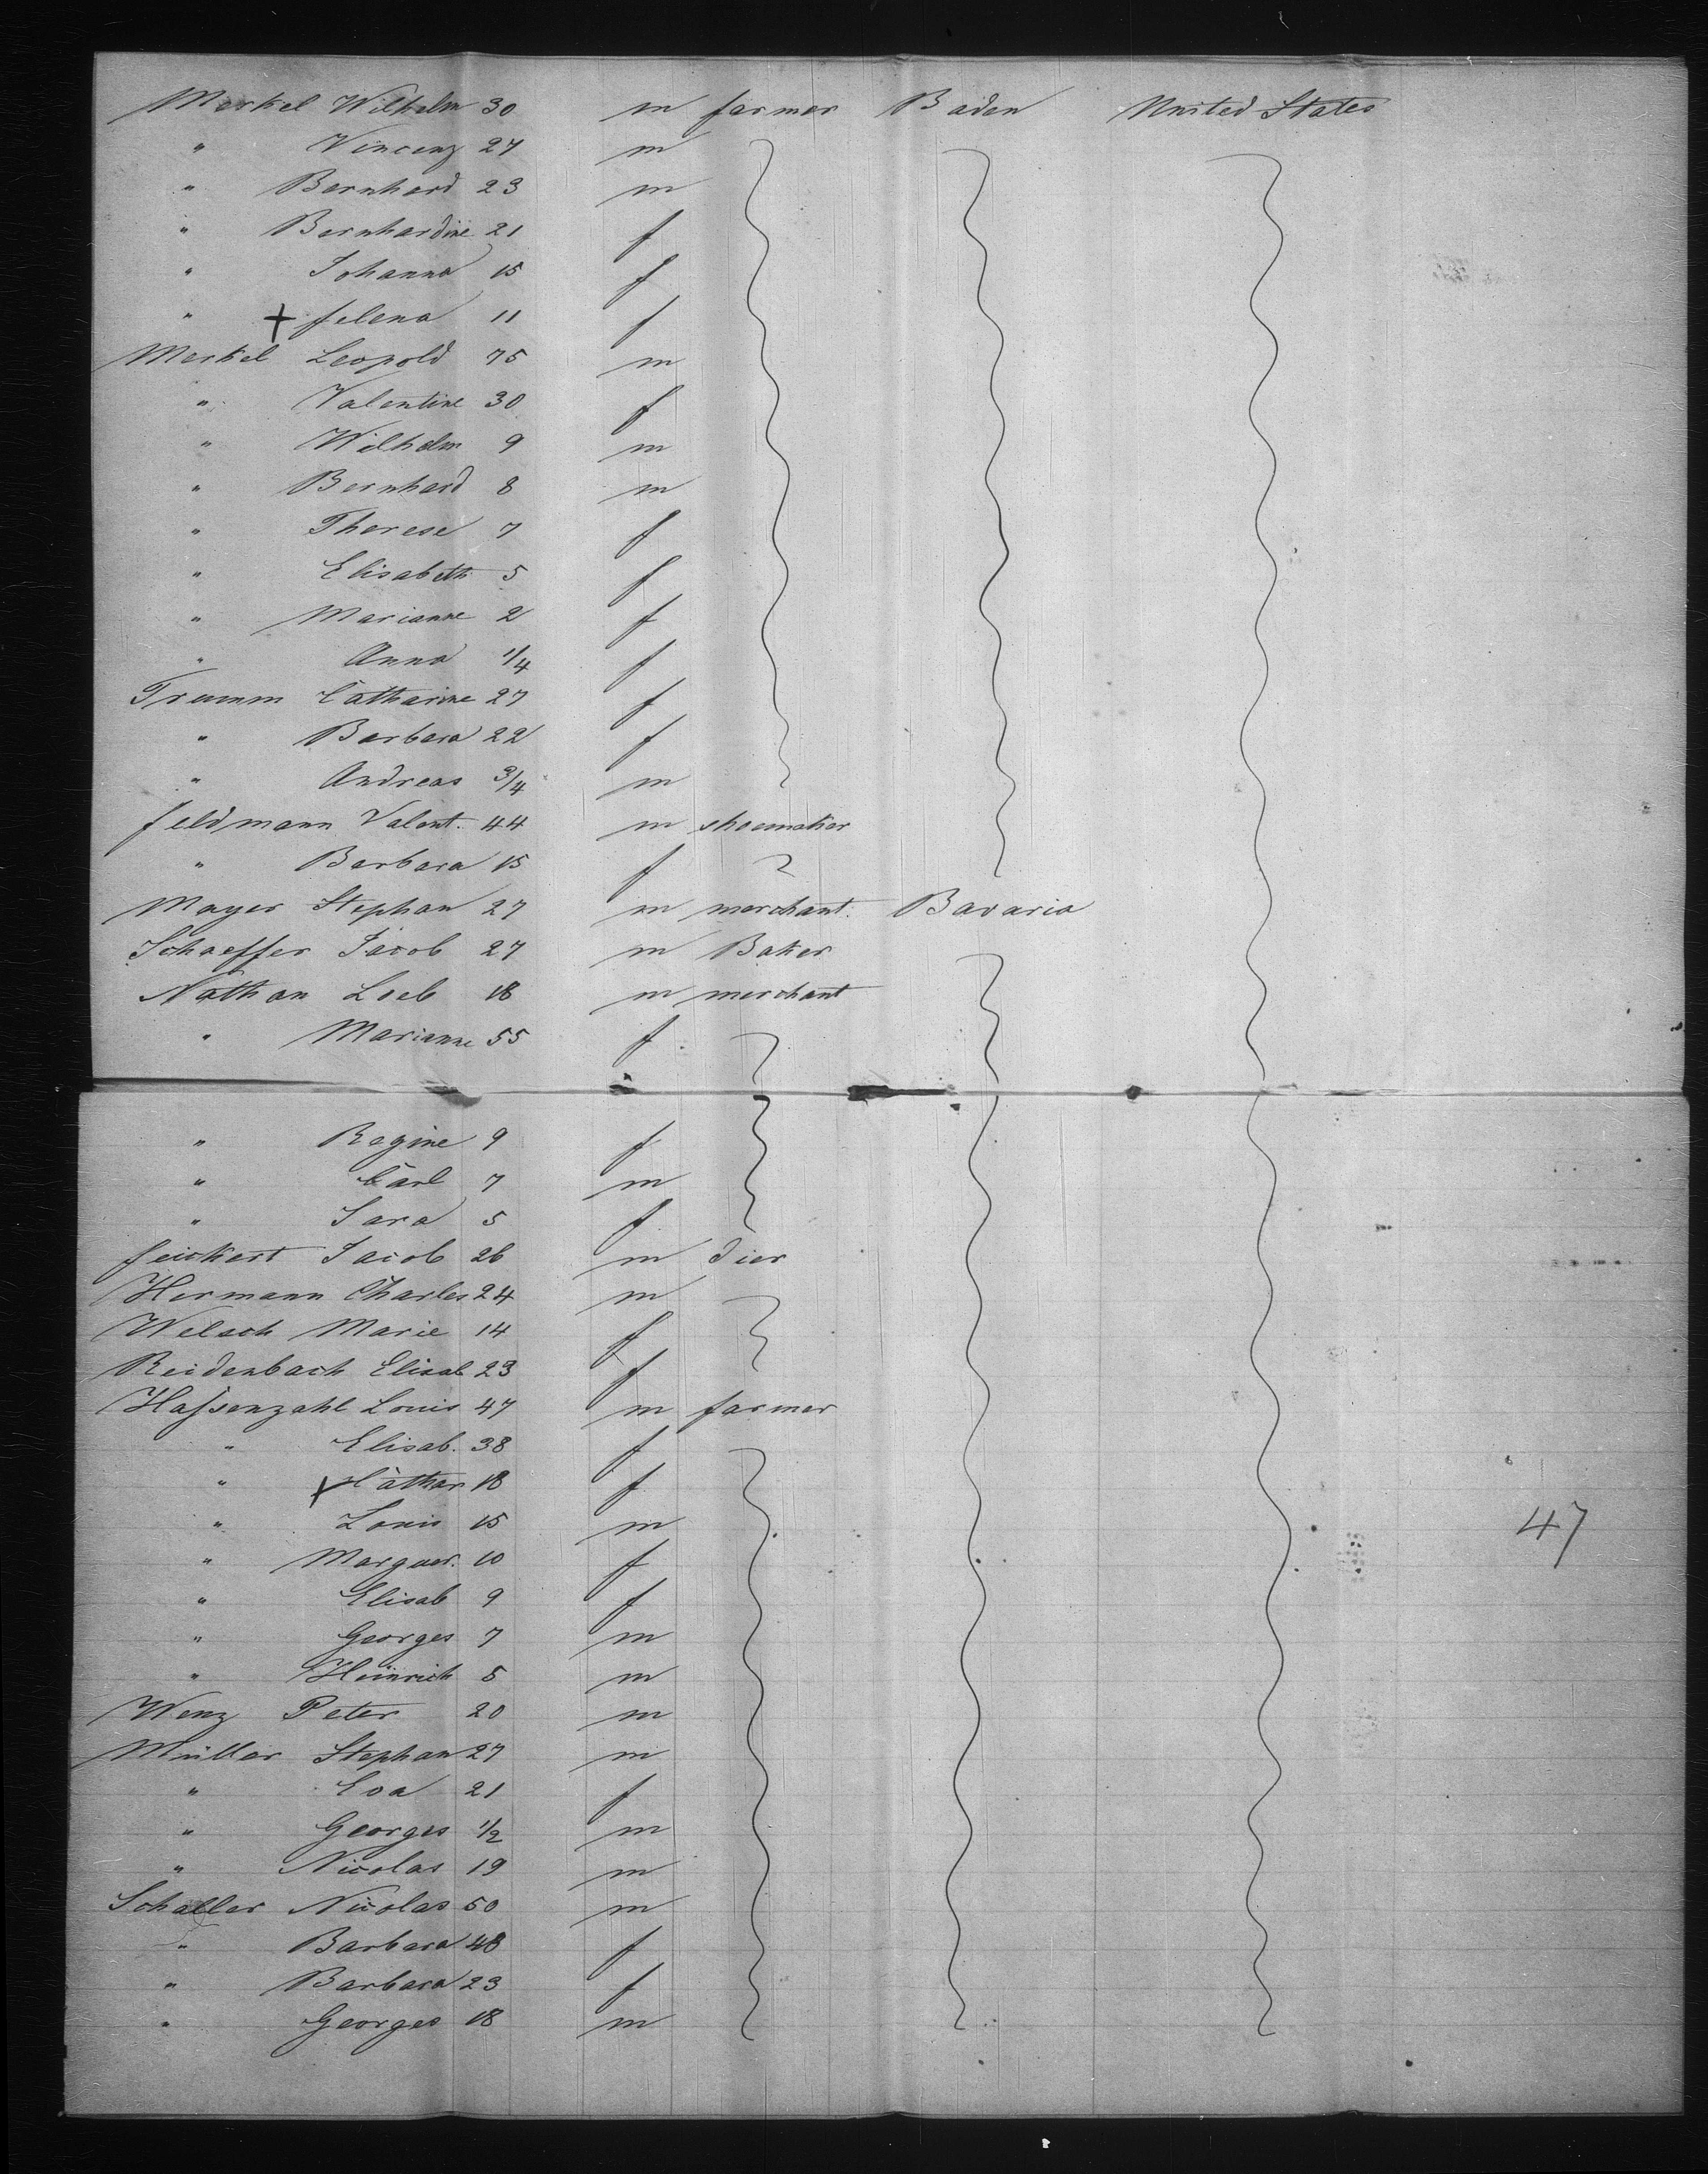 Merkel Wilhelm 30 m farmer Baden United States
" Vincenz 27 m
" Bernhard 23 m
" Bernhardine 21 f
" Johanna 15 f
" + felena 11 f
Merkel Leopold 75 m
" Valentine 30 f
" Wilhelm 9 m
" Bernhard 8 m
" Therese 7 f
" Elisabeth 5 f
" Marianne 2 f
" Anna 1/4 f
Trumm Catharine 27 f
" Barbara 22 f
" Andreas 3/4 m
feldmann Valent. 44 m shoemaker
" Barbara 15 f
Mayer Stephan 27 m merchant. Bavaria
Schaeffer Jacob 27 m Baker
Nathan Loeb 18 m merchant
" Marianne 55 f
" Regine 9 f
" Carl 7 m
" Sara 5 f
feickert Jacob 26 m dier
Hermann Charles 24 m
Welsch Marie 14 f
Reidenbach Elisab 23 f
Haſsenzahl Louis 47 m farmer
" Elisab. 38 f
" + Cathar 18 f
" Louis 15 m
" Marguer. 10 f
" Elisab 9 f
" Georges 7 m
" Heinrich 5 m
47
Wenz Peter 20 m
Müller Stephan 27 m
" Eva 21 f
" Georges 1/2 m
" Nicolas 19 m
Schaller Nicolas 50 m
" Barbara 48 f
" Barbara 23 f
" Georges 18 m